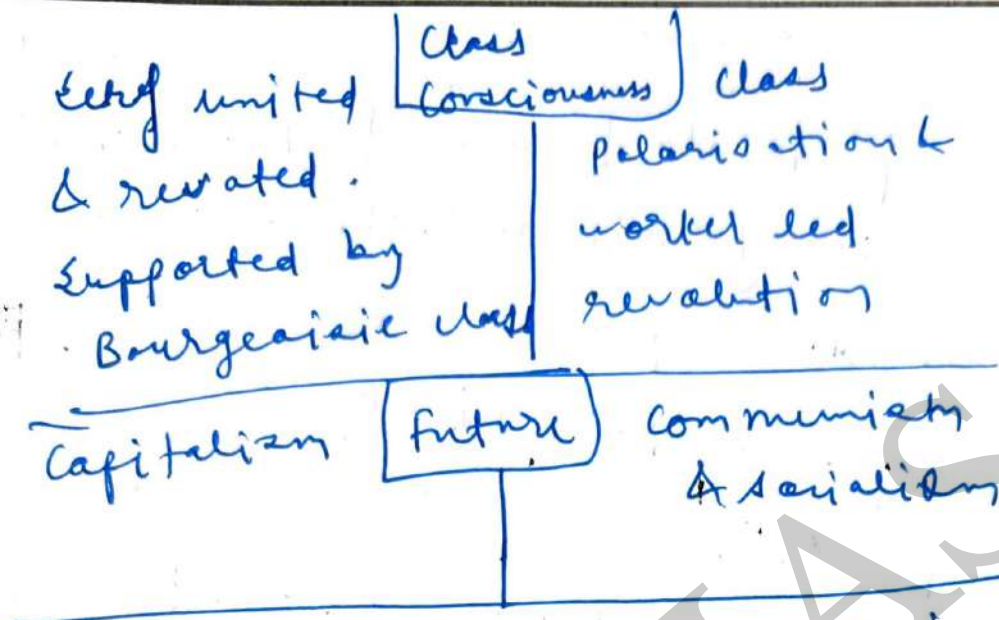 Class
Consciousness
Serf united
& revolted.
Supported by
Bourgeoisie class
Class
Polarisation &
worker led
revolution
Future
Capitalism
Communism
& socialism